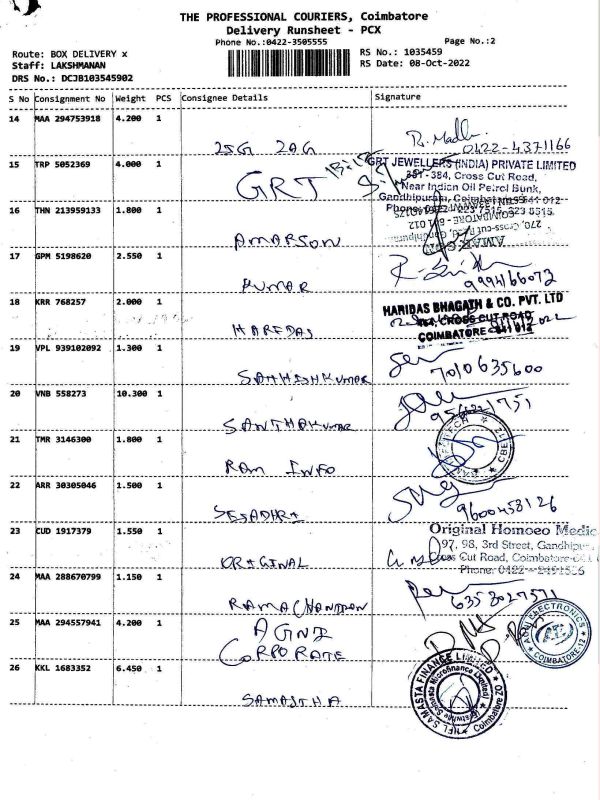 THE PROFESSIONAL COURIERS, Coimbatore
Delivery Runsheet - PCX
Phone No.:0422-3505555
Page No.:2
Route: BOX DELIVERY x
RS No.: 1035459
Staff: LAKSHMANAN
RS Date: 08-Oct-2022
DRS No.: DCJB103545902
S No Consignment No Weight PCS Consignee Details Signature
14 MAA 294753918 4.200 1
R. Madh
0422-4371166
15 TRP 5052369 4.000 1
GRT
GRT JEWELLERS (INDIA) PRIVATE LIMITED
384, Cross Cut Road,
Near Indian Oil Petrol Bunk,
Gandhipuram, Coimbatore
16 THN 213959133 1.800 1
AMARSON
COIMBATORE - 641 012
17 GPM 5198620 2.550 1
KUMAR
9994166073
18 KRR 768257 2.000 1
HAREDAS
HARIDAS BHAGATH & CO. PVT. LTD
CROSS CUT ROAD
COIMBATORE 641 012
19 VPL 939102092 1.300 1
7010635600
20 VNB 558273 10.300 1
SANTHAKUMAR
21 TMR 3146300 1.800 1
RAM INFO
22 ARR 30305046 1.500 1
SESADHRI
9600458126
23 CUD 1917379 1.550 1
ORIGINAL
Original Homoeo Medic
97, 98, 3rd Street, Gandhipu
Cross Cut Road, Coimbatore
Phone: 0422
24 MAA 288670799 1.150 1
RAMACHANDRAN
6358027571
25 MAA 294557941 4.200 1
AGNI
CORPORATE
AGNI ELECTRONICS
COIMBATORE-12
26 KKL 1683352 6.450 1
SAMASTHA
IIFL SAMASTA FINANCE LIMITED
Coimbatore 02